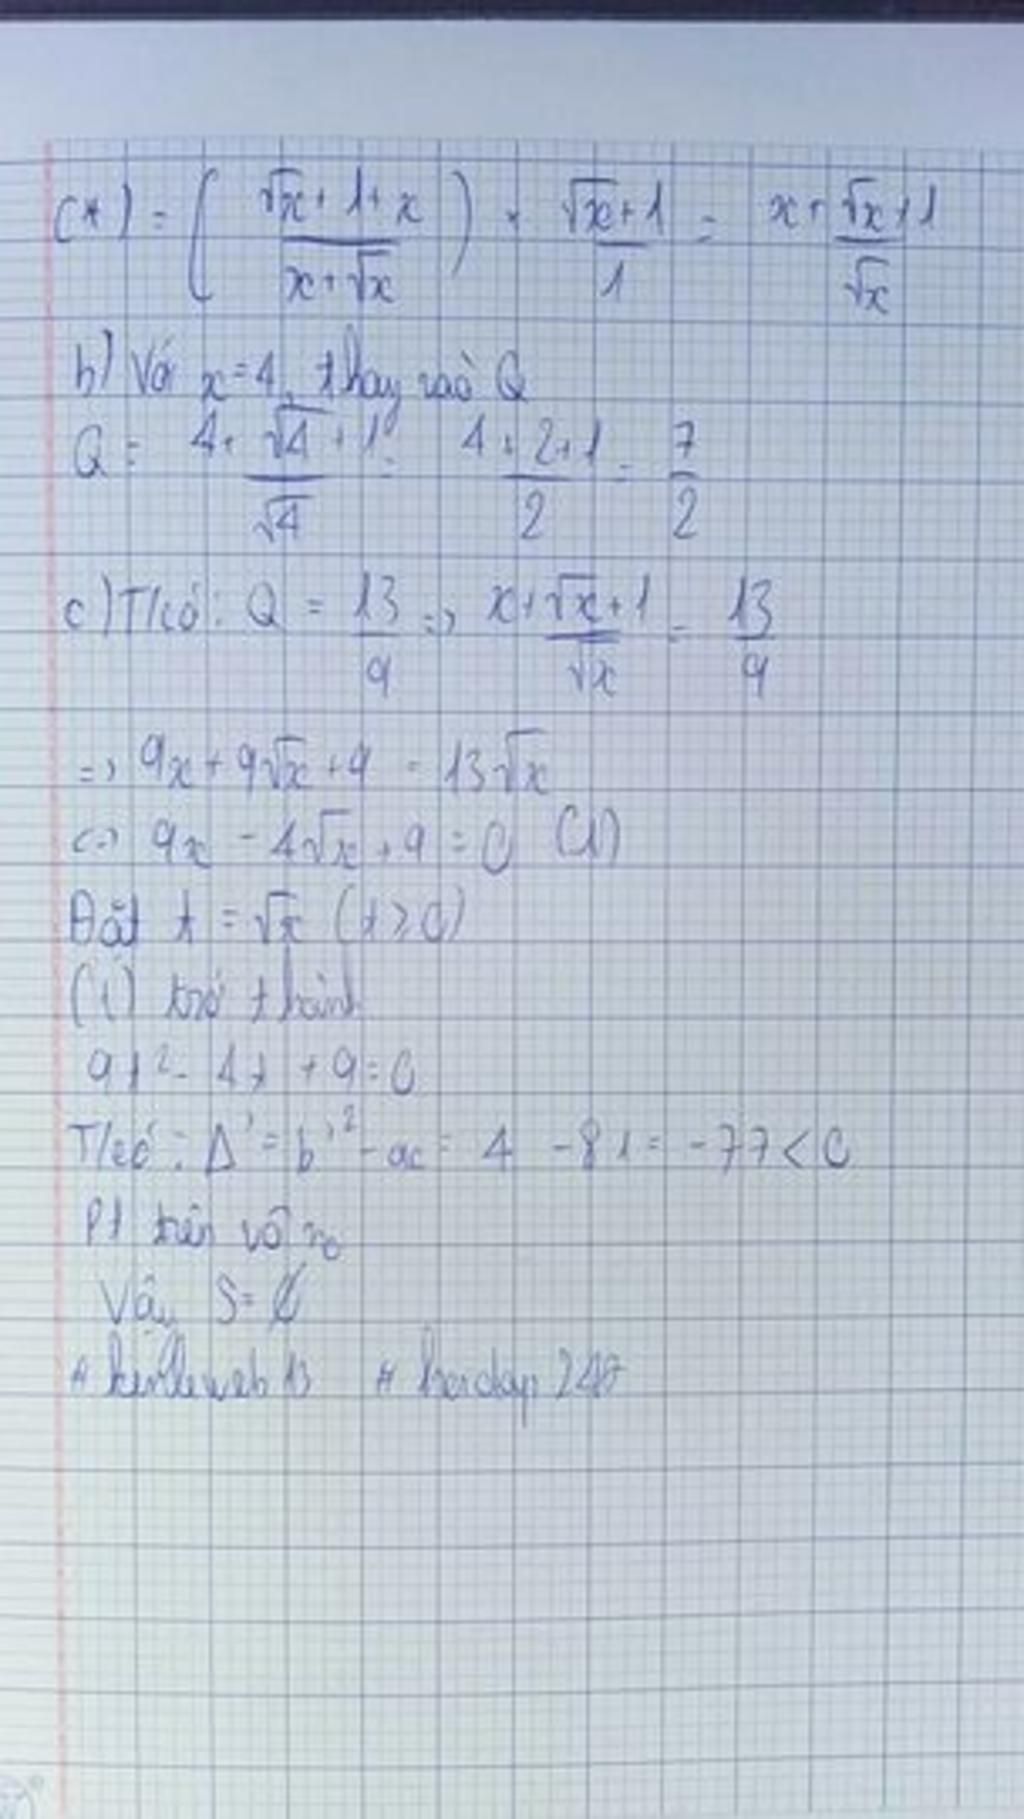 (*) = ( (√x + 1 + x) / (x + √x) ) · (√x + 1) / 1 = (x + √x + 1) / √x
b) Với x = 4, thay vaò Q
Q = (4 + √4 + 1) / √4 = (4 + 2 + 1) / 2 = 7 / 2
c) T/có: Q = 13 / 9 => (x + √x + 1) / √x = 13 / 9
=> 9x + 9√x + 9 = 13√x
<=> 9x - 4√x + 9 = 0 (1)
Đặt t = √x (t ≥ 0)
(1) trở thành
9t² - 4t + 9 = 0
T/có: Δ' = b'² - ac = 4 - 81 = -77 < 0
Pt trên vô no
Vậy S = ∅
# hoidap 247